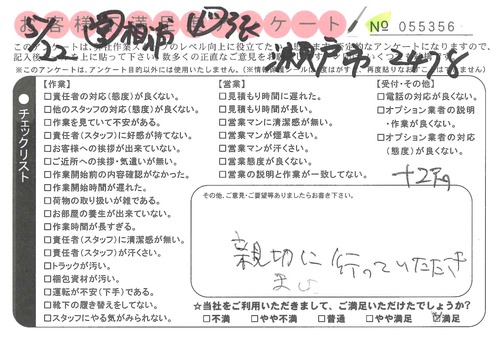 お客様満足度アンケート
№ 055356
5/22
2478
このアンケートは、弊社作業スタッフのレベル向上に役立てた
記入後
※このアンケートは、アンケート目的以外には使用いたしません。
チェックリスト
【作業】
□責任者の対応(態度)が良くない。
□他のスタッフの対応(態度)が良くない。
□作業を見ていて不安がある。
□責任者(スタッフ)に好感が持てない。
□お客様への挨拶が出来ていない。
□ご近所への挨拶・気遣いが無い。
□作業開始前の内容確認がなかった。
□作業開始時間が遅れた。
□荷物の取り扱いが雑である。
□お部屋の養生が出来ていない。
□作業時間が長すぎる。
□責任者(スタッフ)に清潔感が無い。
□責任者(スタッフ)が汗くさい。
□トラックが汚い。
□梱包資材が汚い。
□運転が不安(下手)である。
□靴下の履き替えをしてない。
□スタッフにやる気がみられない。
【営業】
□見積もり時間に遅れた。
□見積もり時間が長い。
□営業マンに清潔感が無い。
□営業マンが煙草くさい。
□営業マンが汗くさい。
□営業態度が良くない。
□営業の説明と作業が一致してない。
【受付・その他】
□電話の対応が良くない。
□オプション業者の説明
・作業が良くない。
□オプション業者の対応
(態度)が良くない。
その他、ご意見・ご要望等ありましたらお書き下さい。
親切に行っていただき
☆当社をご利用いただきまして、ご満足いただけたでしょうか?
□不満 □やや不満 □普通 □やや満足 □満足